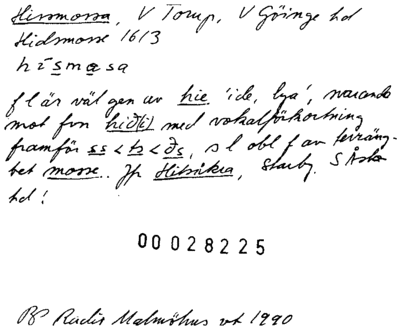 Hissmossa, V Torup, V Göinge hd
Hidsmosse 1613
hĭsmøsa
f l är väl gen av hie 'ide, lya', svarande
mot fvn hið(i) med vokalförkortning
framför ss < ts < ðs, s l obl f av terräng-
bet mosse. Jfr Hitsåkra, Starby, S Åsbo
hd!
00028225
Radio Malmöhus vt 1990